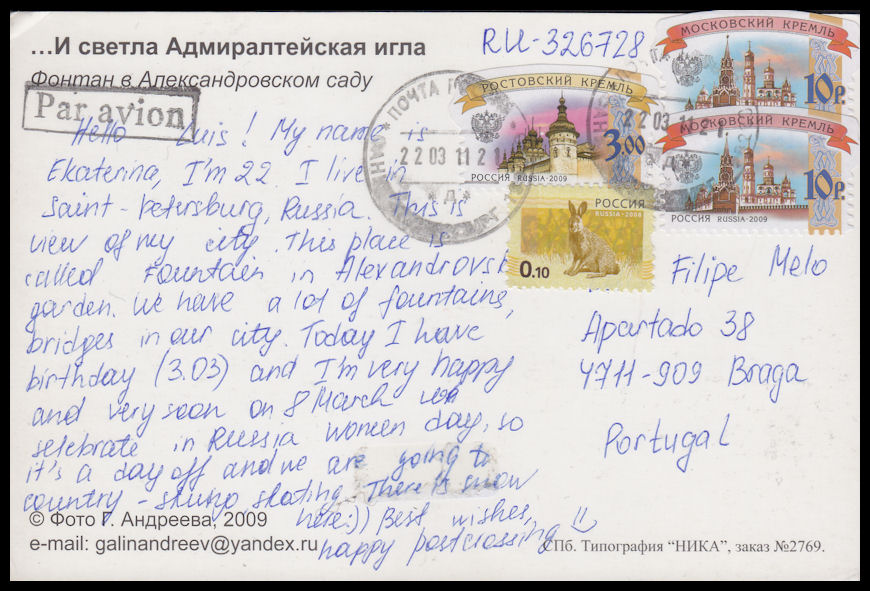 ...И светла Адмиралтейская игла
Фонтан в Александровском саду
RU-326728
Par avion
Hello Luis! My name is
Ekaterina, I'm 22. I live in
Saint-Petersburg, Russia. This is
view of my city. This place is
called Fountain in Alexandrovsk
garden. We have a lot of fountains,
bridges in our city. Today I have
birthday (3.03) and I'm very happy
and very soon on 8 March we
selebrate in Russia women day, so
it's a day off and we are going to
country - skating. There is snow
here:)) Best wishes,
happy postcrossing
© Фото Г. Андреева, 2009
e-mail: galinandreev@yandex.ru
СПб. Типография "НИКА", заказ №2769.
ПОЧТА
22 03 11 2
РОСТОВСКИЙ КРЕМЛЬ
3.00
РОССИЯ RUSSIA-2009
МОСКОВСКИЙ КРЕМЛЬ
10р.
22 03 11
МОСКОВСКИЙ КРЕМЛЬ
10р.
РОССИЯ RUSSIA-2009
РОССИЯ
RUSSIA-2008
0.10
Filipe Melo
Apartado 38
4711-909 Braga
Portugal